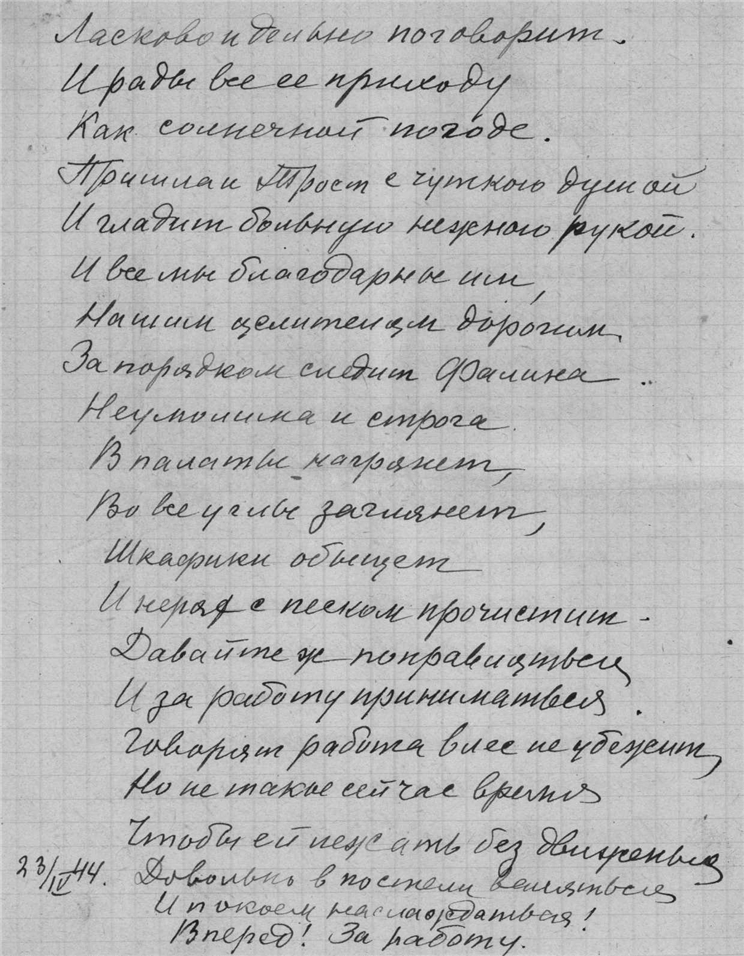 Ласково и дельно поговорит.
И рады все ее приходу
Как солнечной погоде.
Пришла и Трост с чуткою душой
И гладит больную нежною рукой.
И все мы благодарные им,
Нашим целителям дорогим.
За порядком следит Фалина
Неумолима и строга.
В палаты нагрянет,
Во все углы заглянет,
Шкафики обыщет
И нерях с песком прочистит.
Давайте ж поправляться
И за работу приниматься.
Говорят работа в лес не убежит,
Но не такое сейчас время
Чтобы ей лежать без движенья
23/IV 44. Довольно в постели валяться
И покоем наслаждаться!
Вперед! За работу.